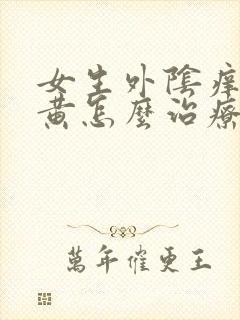 女生外陰癢
黃怎麼治療
萬年催更王